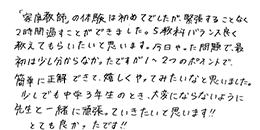 「家庭教師」の体験は初めてでしたが、緊張することなく
2時間過すことができました。5教科バランス良く
教えてもらいたいと思います。今日やった問題で、最
初は少し分からなかったですが1〜2つのポイントで、
簡単に正解できて、嬉しくやってみたいなと思いました。
少しでも中学3年生のとき、大変にならないように
先生と一緒に頑張っていきたいで思います!!
とても良かったです!!